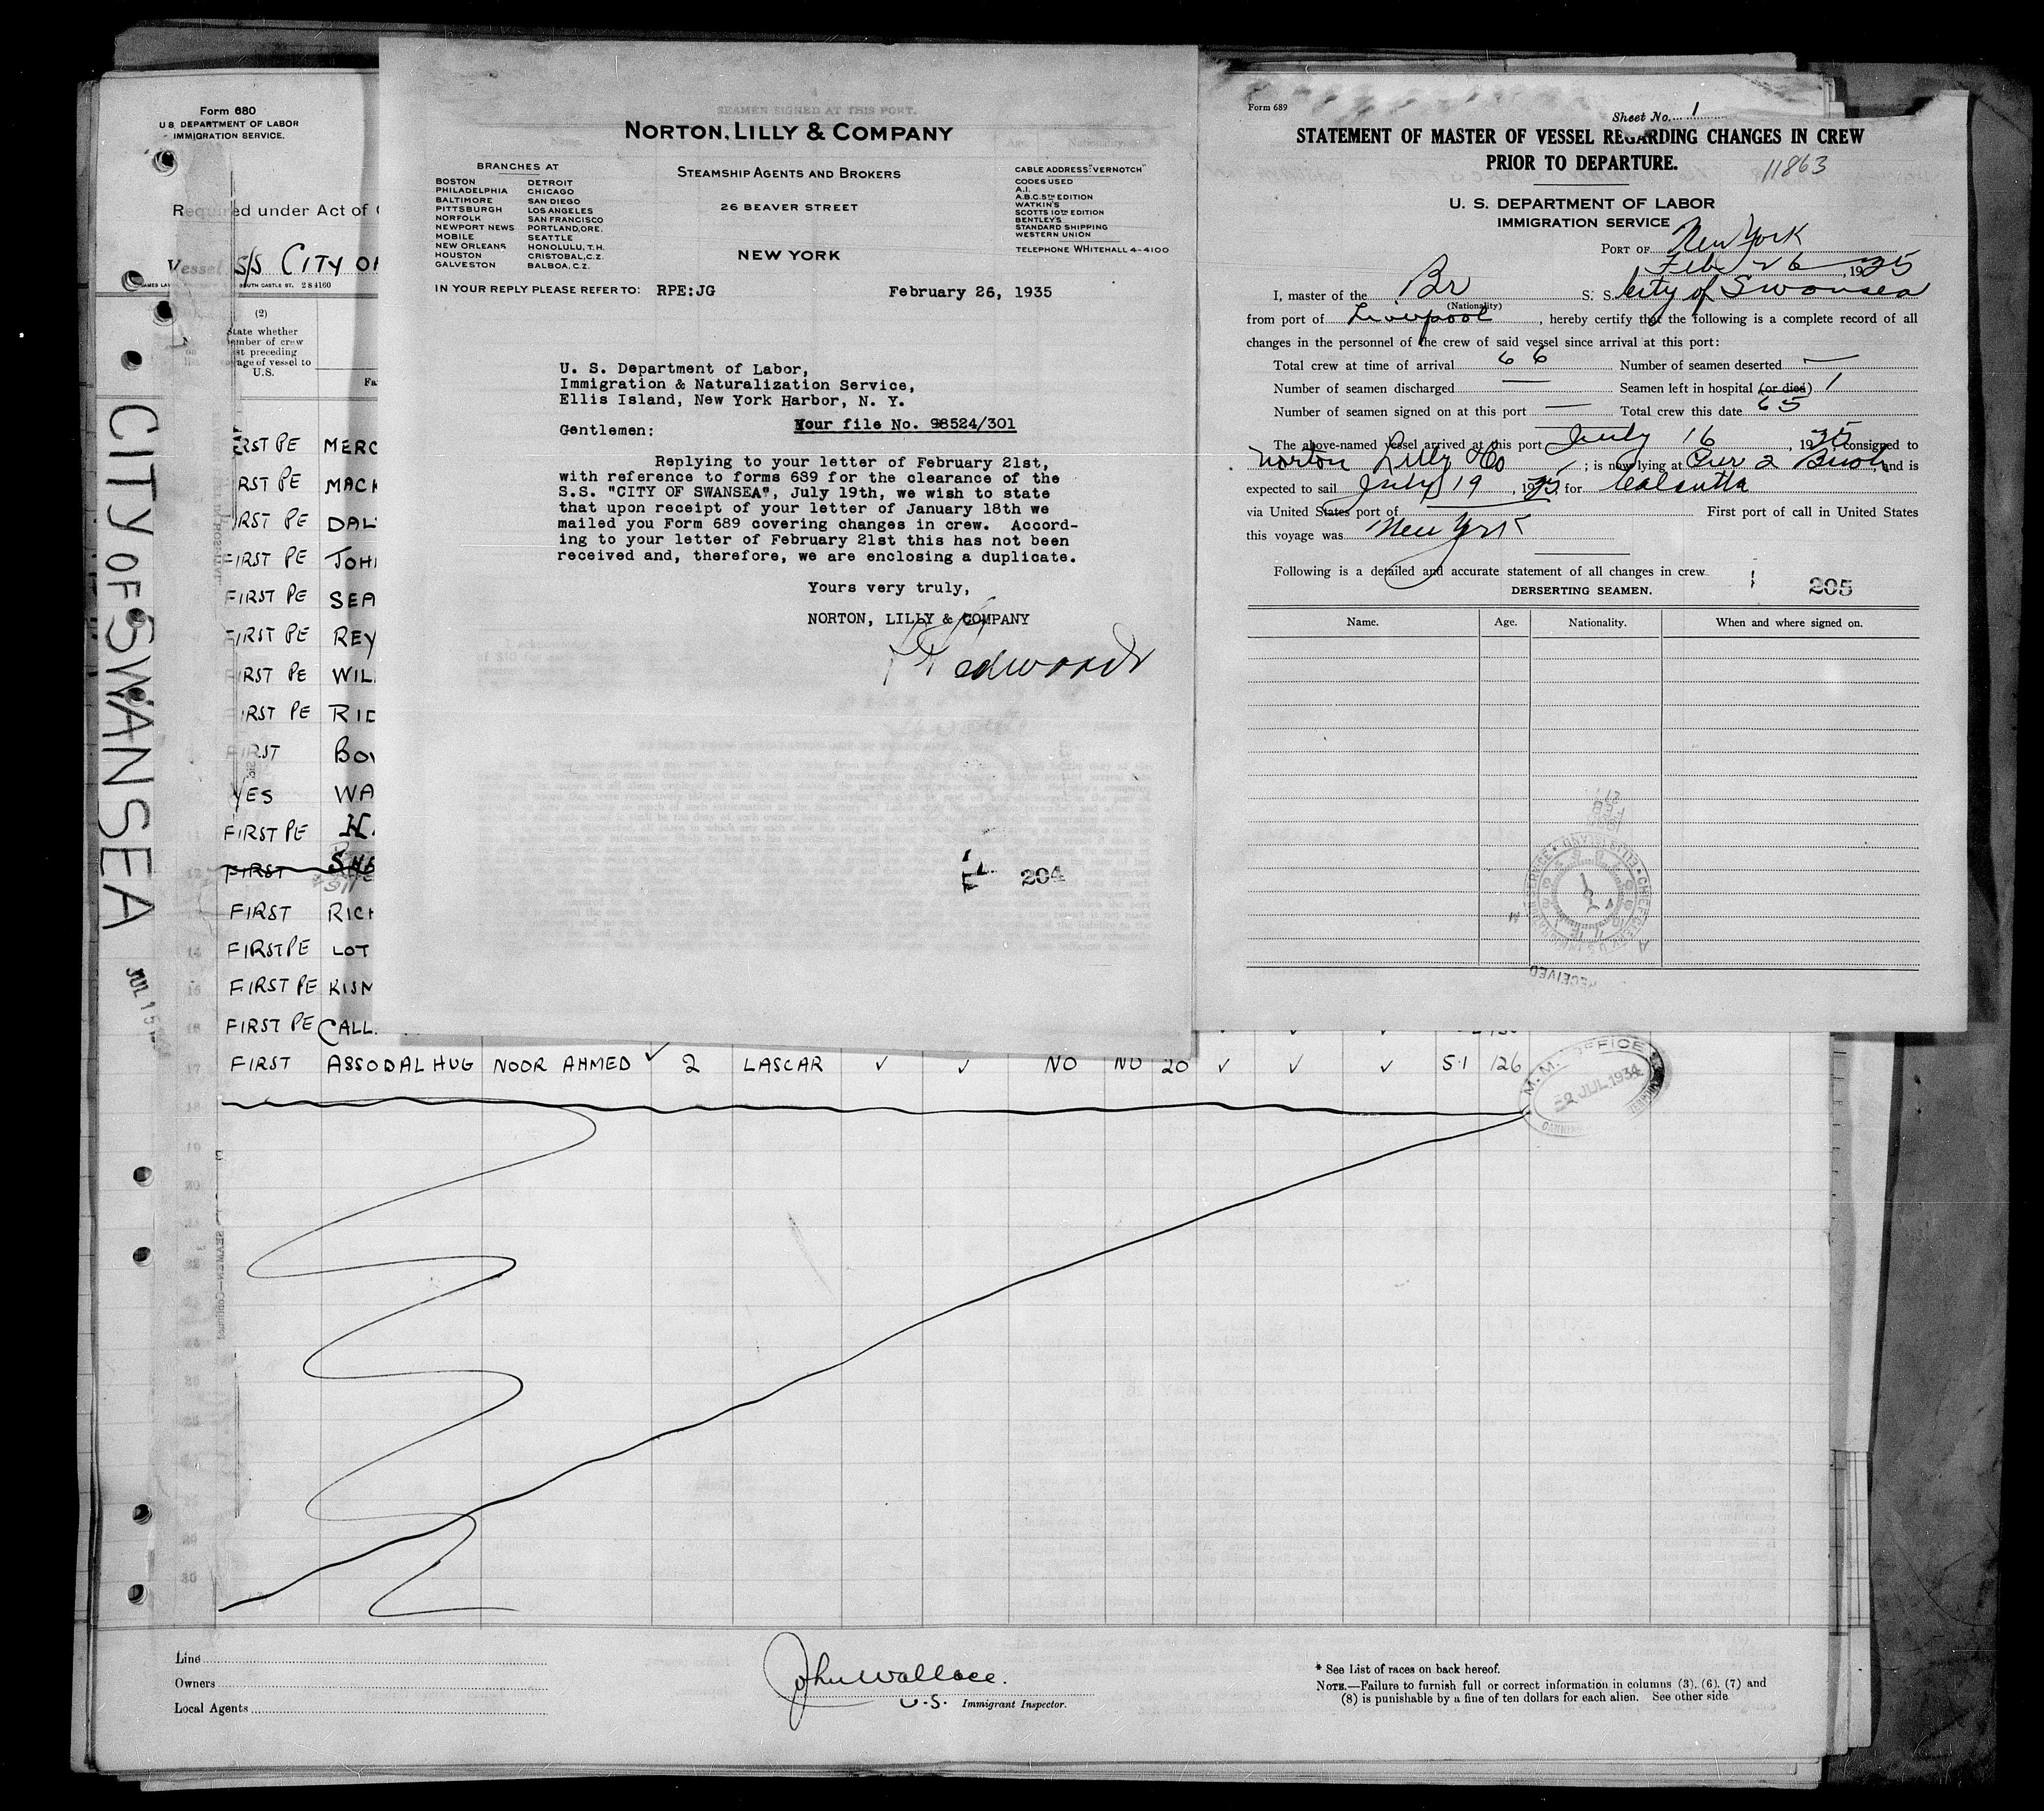 Form 680
U.S. DEPARTMENT OF LABOR
IMMIGRATION SERVICE.
Required under Act of
Vessel S/S CITY OF
SOUTH CASTLE ST. 284160
(2)
State whether
member of crew
last preceding
voyage of vessel to
U.S.
CITY OF SWANSEA
JUL 15
FIRST PE MERC
FIRST PE MACK
FIRST PE DAL
FIRST PE JOH
FIRST PE SEA
FIRST PE REY
FIRST PE WIL
FIRST PE RID
FIRST BOW
YES WA
FIRST PE H.
FIRST
FIRST RICH
14 FIRST PE LOT
15 FIRST PE KISM
16 FIRST PE CALL
17 FIRST ASSODAL HUG NOOR AHMED ✓ 2 LASCAR ✓ ✓ NO NO 20 ✓ ✓ ✓ 5.1 126
18
19
20
30
M.M. OFFICE
2 JUL 1934
Line
Owners
Local Agents
John Wallace.
U.S. Immigrant Inspector.
* See List of races on back hereof.
NOTE.—Failure to furnish full or correct information in columns (3), (6), (7) and
(8) is punishable by a fine of ten dollars for each alien. See other side
SEAMEN SIGNED AT THIS PORT.
NORTON, LILLY & COMPANY
STEAMSHIP AGENTS AND BROKERS
26 BEAVER STREET
NEW YORK
BRANCHES AT
BOSTON DETROIT
PHILADELPHIA CHICAGO
BALTIMORE SAN DIEGO
PITTSBURGH LOS ANGELES
NORFOLK SAN FRANCISCO
NEWPORT NEWS PORTLAND, ORE.
MOBILE SEATTLE
NEW ORLEANS HONOLULU, T.H.
HOUSTON CRISTOBAL, C.Z.
GALVESTON BALBOA, C.Z.
CABLE ADDRESS: "VERNOTCH"
CODES USED
A.I.
A.B.C. 5TH EDITION
WATKIN'S
SCOTTS 10TH EDITION
BENTLEY'S
STANDARD SHIPPING
WESTERN UNION
TELEPHONE WHITEHALL 4-4100
IN YOUR REPLY PLEASE REFER TO: RPE:JG
February 26, 1935
U. S. Department of Labor,
Immigration & Naturalization Service,
Ellis Island, New York Harbor, N. Y.
Your file No. 98524/301
Gentlemen:
Replying to your letter of February 21st,
with reference to forms 689 for the clearance of the
S.S. "CITY OF SWANSEA", July 19th, we wish to state
that upon receipt of your letter of January 18th we
mailed you Form 689 covering changes in crew. Accord-
ing to your letter of February 21st this has not been
received and, therefore, we are enclosing a duplicate.
Yours very truly,
NORTON, LILLY & COMPANY
Edwards
204
Form 689
Sheet No. 1
STATEMENT OF MASTER OF VESSEL REGARDING CHANGES IN CREW
PRIOR TO DEPARTURE.
11863
U. S. DEPARTMENT OF LABOR
IMMIGRATION SERVICE
PORT OF New York
Feb 26, 1935
I, master of the Br S. S. City of Swansea
(Nationality)
from port of Liverpool, hereby certify that the following is a complete record of all
changes in the personnel of the crew of said vessel since arrival at this port:
Total crew at time of arrival 66 Number of seamen deserted —
Number of seamen discharged — Seamen left in hospital (or died) 1
Number of seamen signed on at this port — Total crew this date 65
The above-named vessel arrived at this port July 16, 1935, consigned to
Norton Lilly Co; is now lying at Pier 2 Bush, and is
expected to sail July 19, 1935, for Calcutta
via United States port of First port of call in United States
this voyage was New York
Following is a detailed and accurate statement of all changes in crew
DERSERTING SEAMEN.
205
Name. Age. Nationality. When and where signed on.
RECEIVED